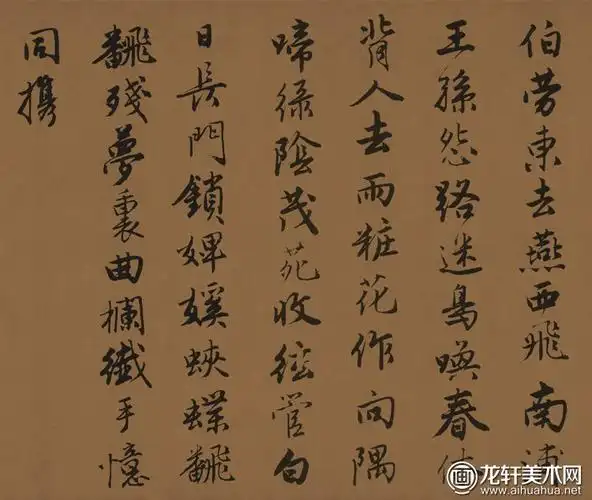 伯勞東去燕西飛南浦
王孫怨路迷鳥喚春休
背人去雨粧花作向隅
啼緑陰茂苑收絃管白
日長門鎖婢㜎蛺蝶飜
飜殘夢裏曲欄纖手憶
同攜
龙轩美术网
www.aihuahua.net